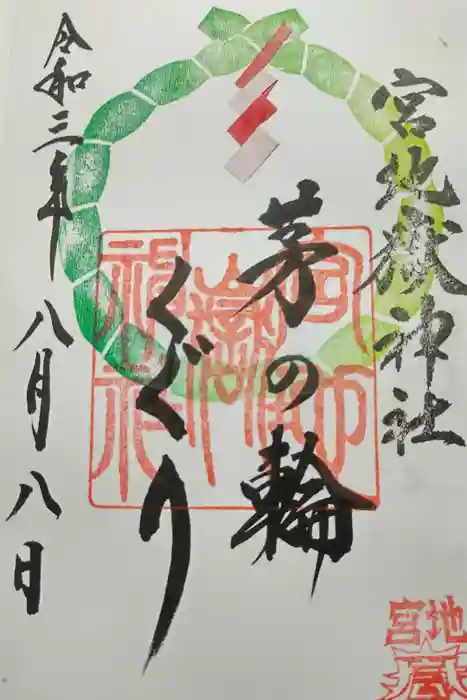 宮地嶽神社
茅の輪
くぐり
令和三年八月八日
宮地嶽神社
宮地嶽